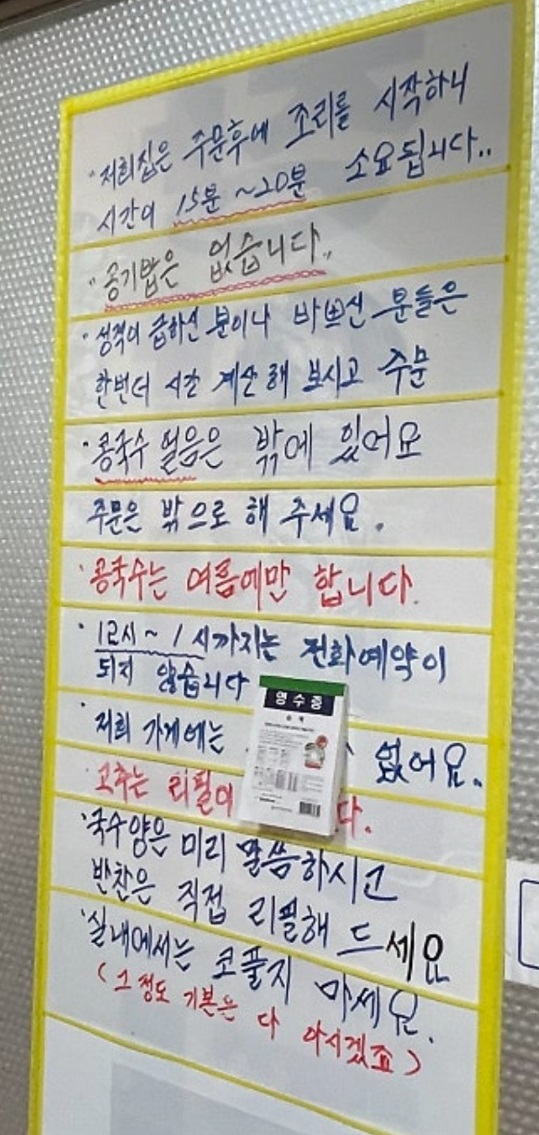 "저희집은 주문후에 조리를 시작하니
시간이 15분 ~20분 소요됩니다..
"공기밥은 없습니다."
· 성격이 급하신 분이나 바쁘신 분들은
한번더 시간 계산 해 보시고 주문
· 콩국수 얼음은 밖에 있어요
주문은 밖으로 해 주세요.
· 콩국수는 여름에만 합니다.
· 12시~1시까지는 전화예약이
되지 않습니다
· 저희 가게에는 없어요.
영수증
고추는 리필이 다.
· 국수양은 미리 말씀하시고
반찬은 직접 리필해 드세요
· 실내에서는 코풀지 마세요.
(그정도 기본은 다 아시겠죠)